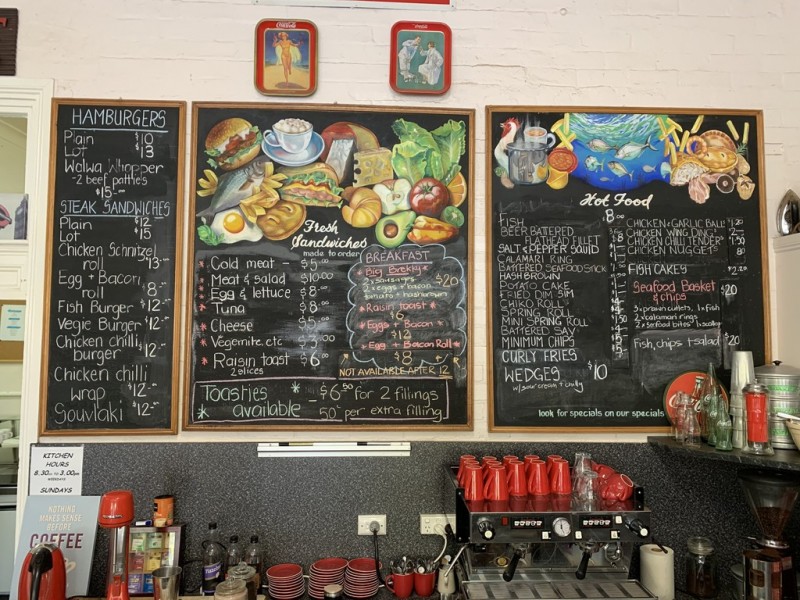 Coca-Cola
HAMBURGERS
Plain $10
Lot $13
Walwa Whopper
-2 beef patties
$15.-
STEAK SANDWICHES
Plain $12
Lot $15
Chicken Schnitzel
roll $13.-
Egg + Bacon
roll $8.-
Fish Burger $12.-
Vegie Burger $12.-
Chicken chilli
burger $12.-
Chicken chilli
wrap $12.-
Souvlaki $12.-
Fresh
Sandwiches
made to order
Cold meat - $5.00
Meat & salad
Egg & lettuce
Tuna
Cheese
Vegemite etc
Raisin toast $6.00
2 slices
BREAKFAST
Big Brekky
$20
2 x eggs + bacon
Raisin toast
$6
Eggs + Bacon
$12
Egg + Bacon Roll
$8
NOT AVAILABLE AFTER 12
Toasties
available
$6.50 for 2 fillings
50c per extra filling
Hot Food
FISH 8.00
BEER BATTERED
FLATHEAD FILLET
SALT & PEPPER SQUID
CALAMARI RING
BATTERED SEAFOOD STICK
HASH BROWN
POTATO CAKE
FRIED DIM SIM
CHIKO ROLL
SPRING ROLL
MINI SPRING ROLL
BATTERED SAV
MINIMUM CHIPS
CURLY FRIES
WEDGES $10
w/ sour cream + chilly
CHICKEN & GARLIC BALL
CHICKEN WING DING
CHICKEN CHILLI TENDER
CHICKEN NUGGETS
FISH CAKES
Seafood Basket $20
& chips
3 x prawn cutlets, 1 x fish
2 x calamari rings
2 x seafood bites
Fish, chips + salad $20
look for specials on our specials
KITCHEN
HOURS
8.30am TO 3.00pm
WEEKDAYS
SUNDAYS
NOTHING
MAKES SENSE
BEFORE
COFFEE